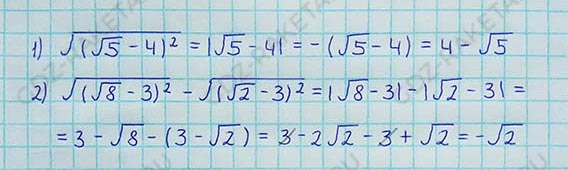 1) √(√5 - 4)² = |√5 - 4| = -(√5 - 4) = 4 - √5
2) √(√8 - 3)² - √(√2 - 3)² = |√8 - 3| - |√2 - 3| =
= 3 - √8 - (3 - √2) = 3 - 2√2 - 3 + √2 = -√2